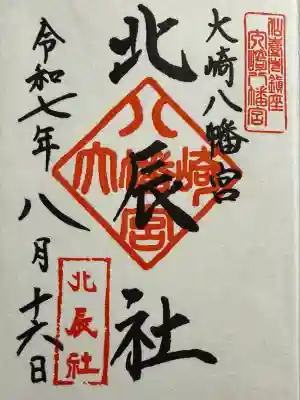 仙臺市鎮座
大崎八幡宮
大崎八幡宮
北辰社
八
大八幡崎
宮
令和七年八月十六日
北辰社